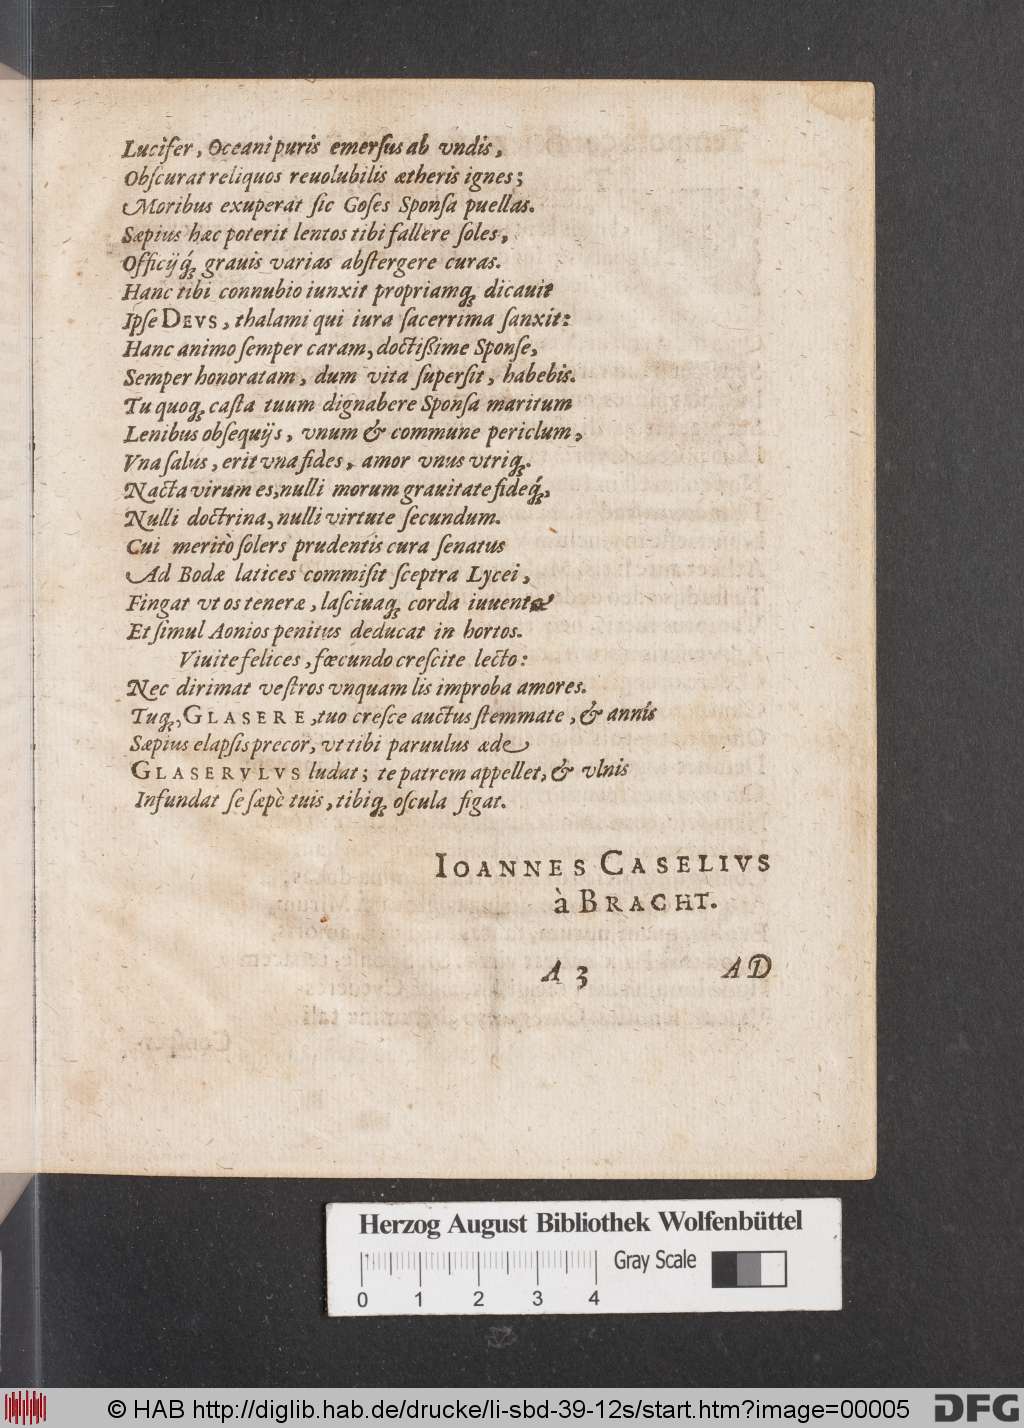 Lucifer, Oceani puris emerſus ab vndis,
Obſcurat reliquos reuolubilis ætheris ignes;
Moribus exuperat ſic Goſes Sponſa puellas.
Sæpius hæc poterit lentos tibi fallere ſoles,
Officijq́ꝫ grauis varias abſtergere curas.
Hanc tibi connubio iunxit propriamqꝫ dicauit
Ipſe DEVS, thalami qui iura ſacerrima ſanxit:
Hanc animo ſemper caram, doctißime Sponſe,
Semper honoratam, dum vita ſuperſit, habebis.
Tu quoqꝫ caſta tuum dignabere Sponſa maritum
Lenibus obſequijs, vnum & commune periclum,
Vna ſalus, erit vna fides, amor vnus vtriqꝫ.
Nacta virum es, nulli morum grauitate fideq́ꝫ,
Nulli doctrina, nulli virtute ſecundum.
Cui meritò ſolers prudentis cura ſenatus
Ad Bodæ latices commiſit ſceptra Lycei,
Fingat vt os teneræ, laſciuaqꝫ corda iuuentæ
Et ſimul Aonios penitus deducat in hortos.
Viuite felices, fœcundo creſcite lecto:
Nec dirimat veſtros vnquam lis improba amores.
Tuqꝫ, GLASERE, tuo creſce auctus ſtemmate, & annis
Sæpius elapſis precor, vt tibi paruulus æde
GLASERVLVS ludat; te patrem appellet, & vlnis
Infundat ſe ſæpè tuis, tibiqꝫ oſcula figat.
IOANNES CASELIVS
à BRACHT.
A 3 AD
Herzog August Bibliothek Wolfenbüttel
Gray Scale
0 1 2 3 4
© HAB http://diglib.hab.de/drucke/li-sbd-39-12s/start.htm?image=00005
DFG